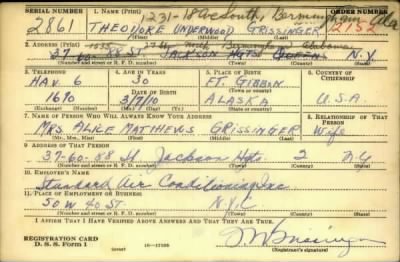 SERIAL NUMBER 1. NAME (Print) ORDER NUMBER
1231-18 Ave South, Birmingham Ala
2861 THEODORE UNDERWOOD GRISSINGER 12752
(First) (Middle) (Last)
2. ADDRESS (Print)
North Birmingham Alabama
37 88 ST JACKSON HGTS QUEENS N.Y.
(Number and street or R. F. D. number) (Town) (County) (State)
3. TELEPHONE 4. AGE IN YEARS 5. PLACE OF BIRTH 6. COUNTRY OF CITIZENSHIP
HAV. 6 30 FT. GIBBON
DATE OF BIRTH
1690 3/7/10 ALASKA U.S.A.
(Exchange) (Number) (Mo.) (Day) (Yr.) (State or country)
7. NAME OF PERSON WHO WILL ALWAYS KNOW YOUR ADDRESS 8. RELATIONSHIP OF THAT PERSON
MRS. ALICE MATTHEWS GRISSINGER Wife
(Mr., Mrs., Miss) (First) (Middle) (Last)
9. ADDRESS OF THAT PERSON
37-60-88 St. Jackson Hgts. N.Y.
(Number and street or R. F. D. number) (Town) (County) (State)
10. EMPLOYER'S NAME
Standard Air Conditioning Inc
11. PLACE OF EMPLOYMENT OR BUSINESS
50 W 40 ST. N.Y.C
(Number and street or R. F. D. number) (Town) (County) (State)
I AFFIRM THAT I HAVE VERIFIED ABOVE ANSWERS AND THAT THEY ARE TRUE.
REGISTRATION CARD
D. S. S. Form 1 (over) 16-17105
(Registrant's signature)